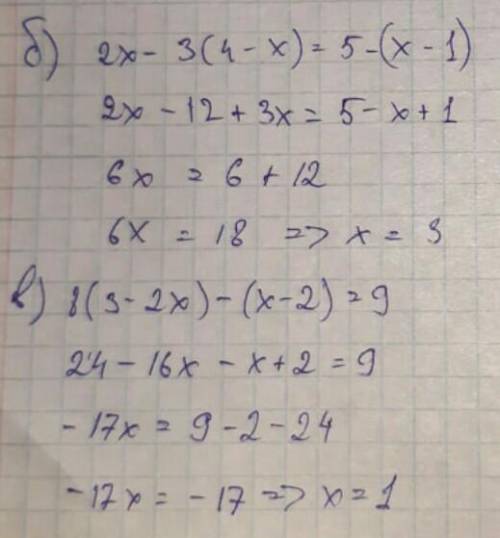 б) 2x - 3(4 - x) = 5 - (x - 1)
2x - 12 + 3x = 5 - x + 1
6x = 6 + 12
6x = 18 => x = 3
в) 8(3 - 2x) - (x - 2) = 9
24 - 16x - x + 2 = 9
-17x = 9 - 2 - 24
-17x = -17 => x = 1